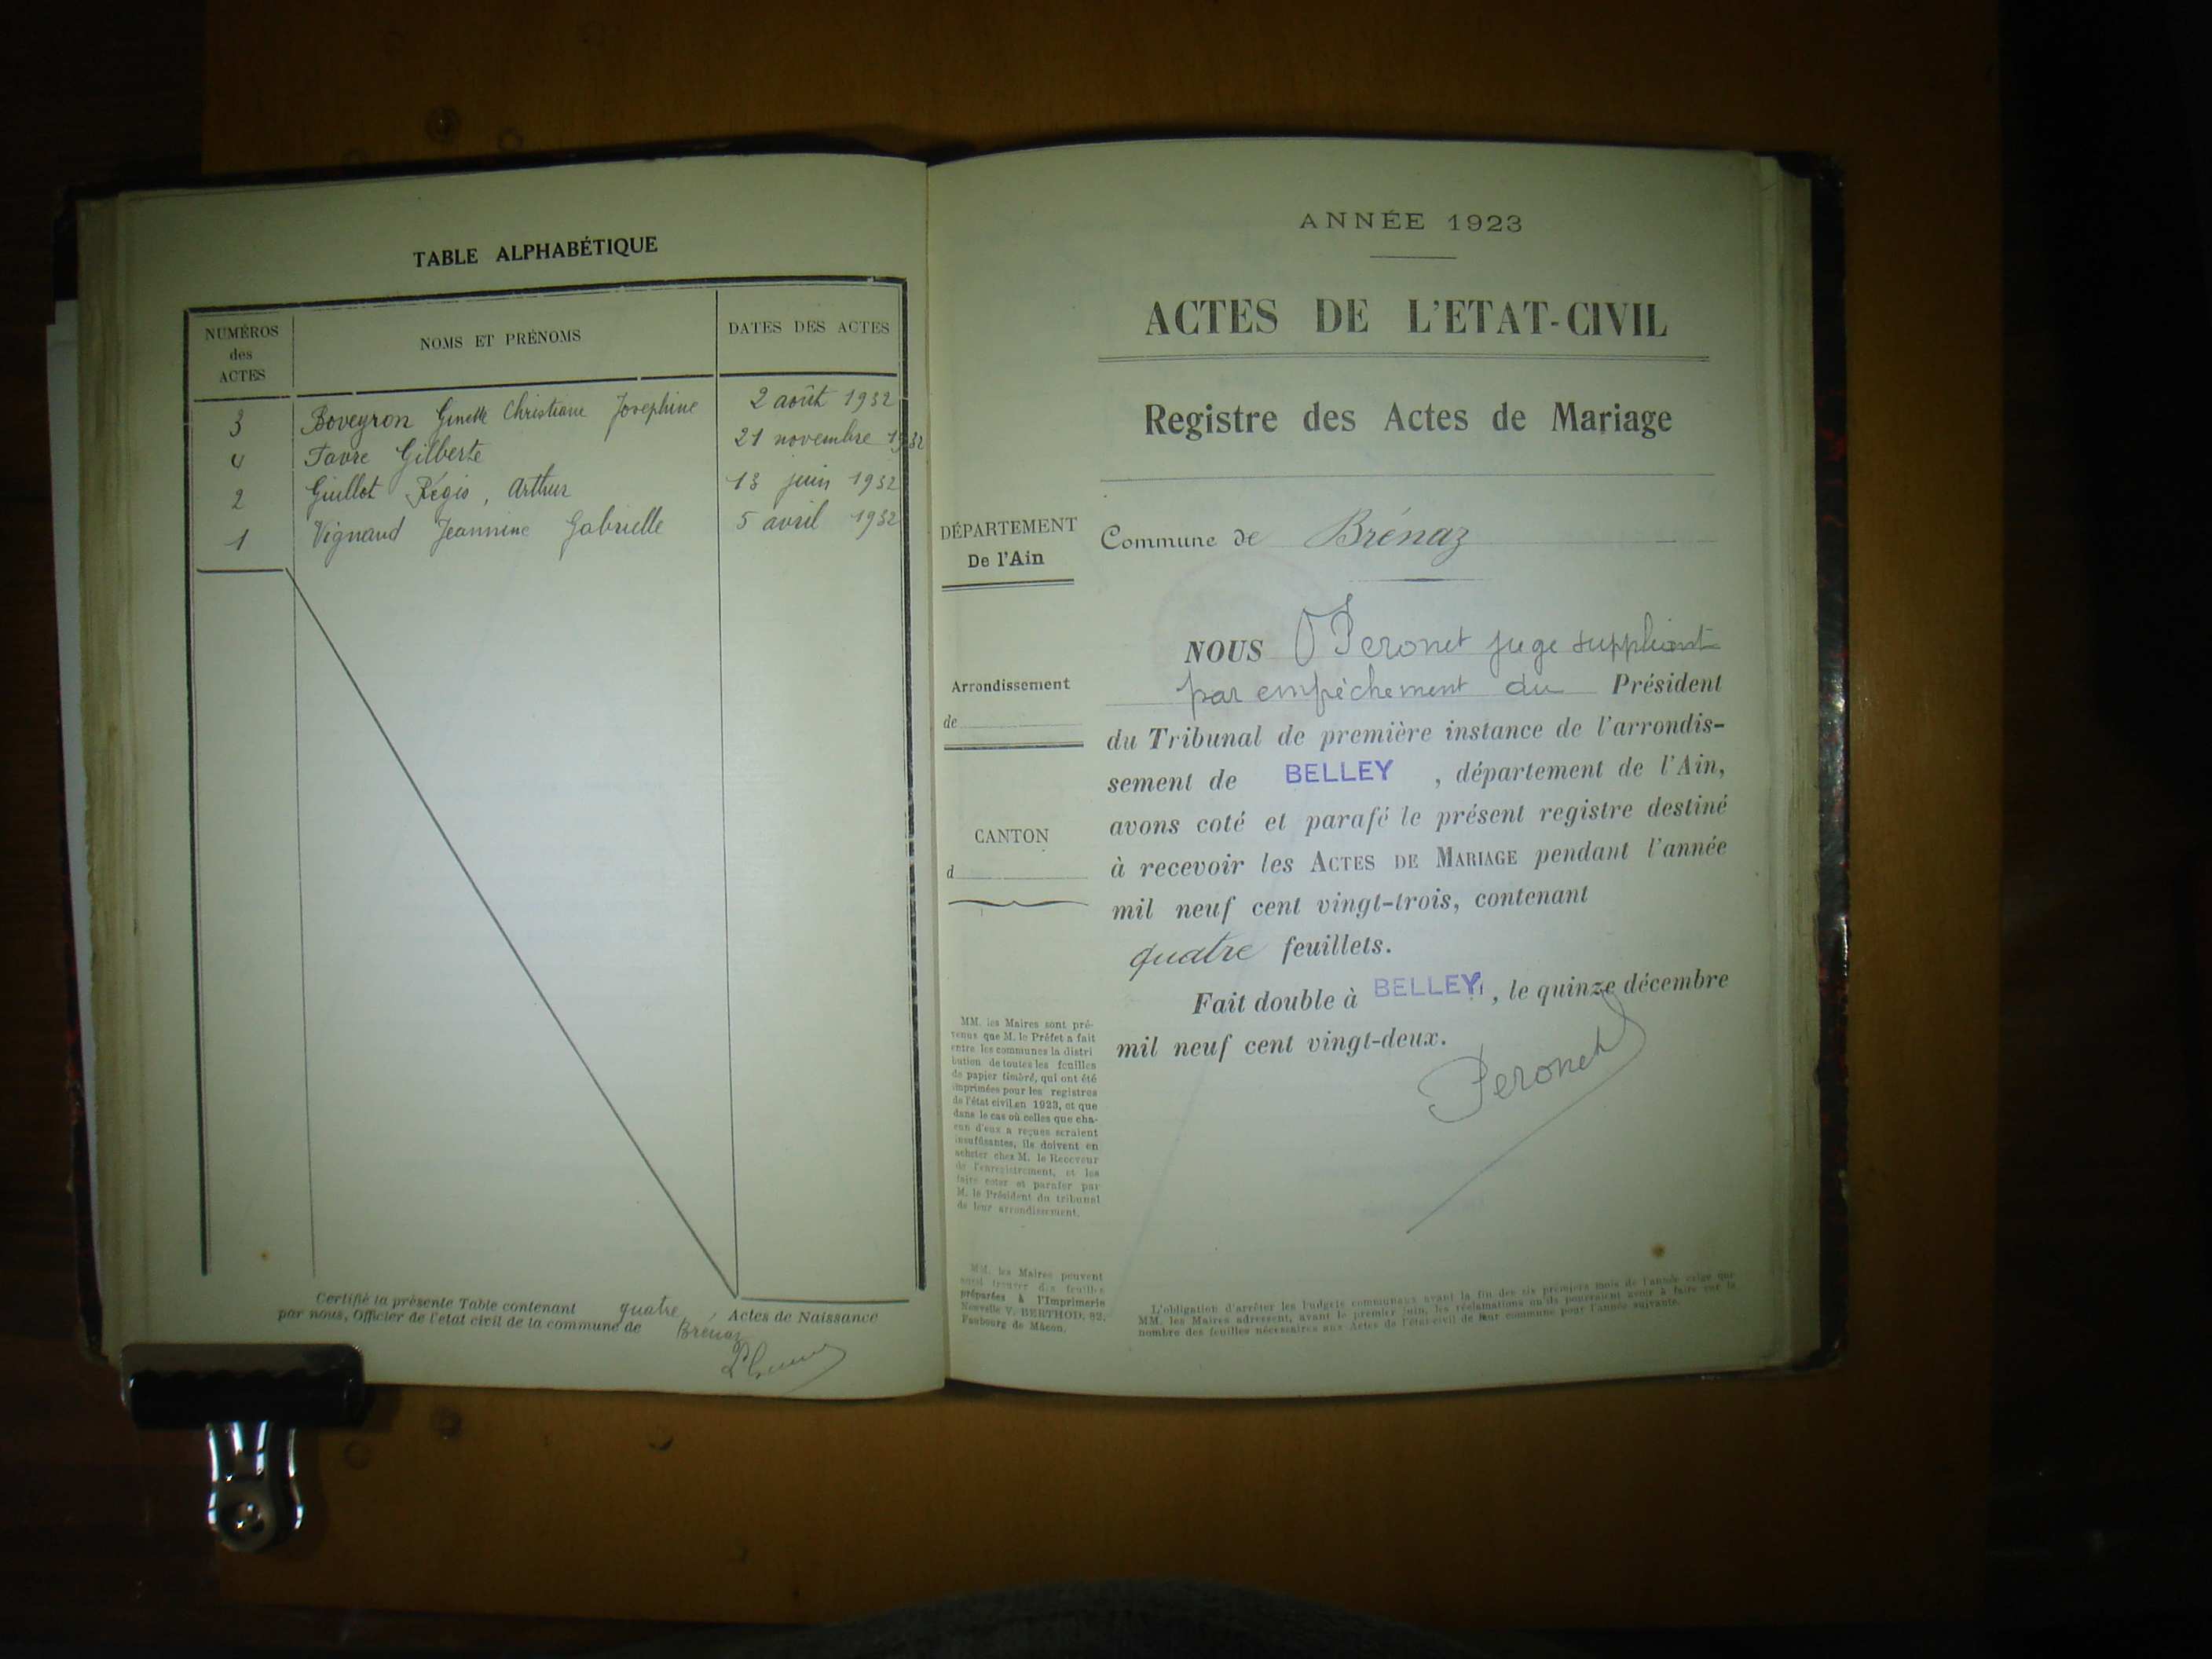 TABLE ALPHABÉTIQUE
NUMÉROS des ACTES
NOMS ET PRÉNOMS
DATES DES ACTES
3 Boveyron Ginette Christiane Josephine 2 août 1932
4 Favre Gilberte 21 novembre 1932
2 Guillot Régis, Arthur 13 juin 1932
1 Vignaud Jeannine Gabrielle 5 avril 1932
Certifié la présente Table contenant quatre Actes de Naissance
par nous, Officier de l'état civil de la commune de Brénaz
ANNÉE 1923
ACTES DE L'ETAT-CIVIL
Registre des Actes de Mariage
DÉPARTEMENT
De l'Ain
Commune de Brénaz
Arrondissement
de
CANTON
d
NOUS Peronet juge suppléant
par empêchement du Président
du Tribunal de première instance de l'arrondis-
sement de BELLEY, département de l'Ain,
avons coté et parafé le présent registre destiné
à recevoir les ACTES DE MARIAGE pendant l'année
mil neuf cent vingt-trois, contenant
quatre feuillets.
Fait double à BELLEY, le quinze décembre
mil neuf cent vingt-deux.
Peronet
MM. les Maires sont pré-
venus que M. le Préfet a fait
entre les communes la distri
bution de toutes les feuilles
de papier timbré, qui ont été
imprimées pour les registres
de l'état civil en 1923, et que
dans le cas où celles que cha-
cun d'eux a reçues seraient
insuffisantes, ils doivent en
acheter chez M. le Receveur
de l'enregistrement, et les
faire coter et parafer par
M. le Président du tribunal
de leur arrondissement.
MM. les Maires peuvent
aussi trouver des feuilles
préparées à l'Imprimerie
Nouvelle V. BERTHOD, 82,
Faubourg de Mâcon.
L'obligation d'arrêter les budgets communaux avant la fin des six premiers mois de l'année exige que
MM. les Maires adressent, avant le premier juin, les réclamations qu'ils pourraient avoir à faire sur le
nombre des feuilles nécessaires aux Actes de l'état-civil de leur commune pour l'année suivante.